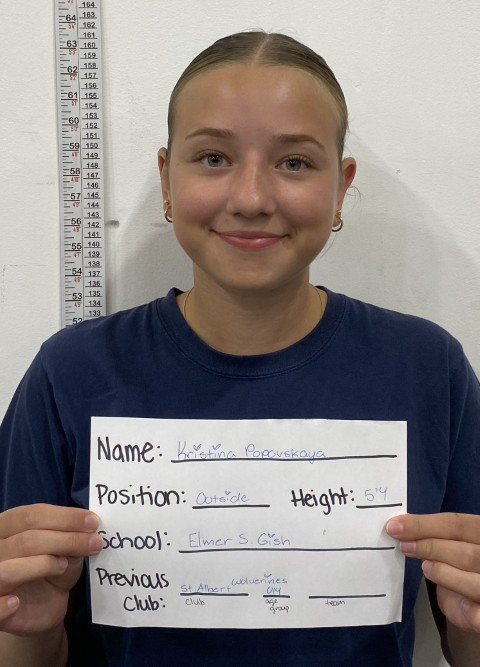 64
63
62
61
60
59
58
57
56
55
54
53
52
164
163
162
161
160
159
158
157
156
155
154
153
152
151
150
149
148
147
146
145
144
143
142
141
140
139
138
137
136
135
134
133
Name: Kristina Popovskaya
Position: Outside Height: 5'4
School: Elmer S. Gish
Previous St Albert Wolverines U14
Club: club age group team